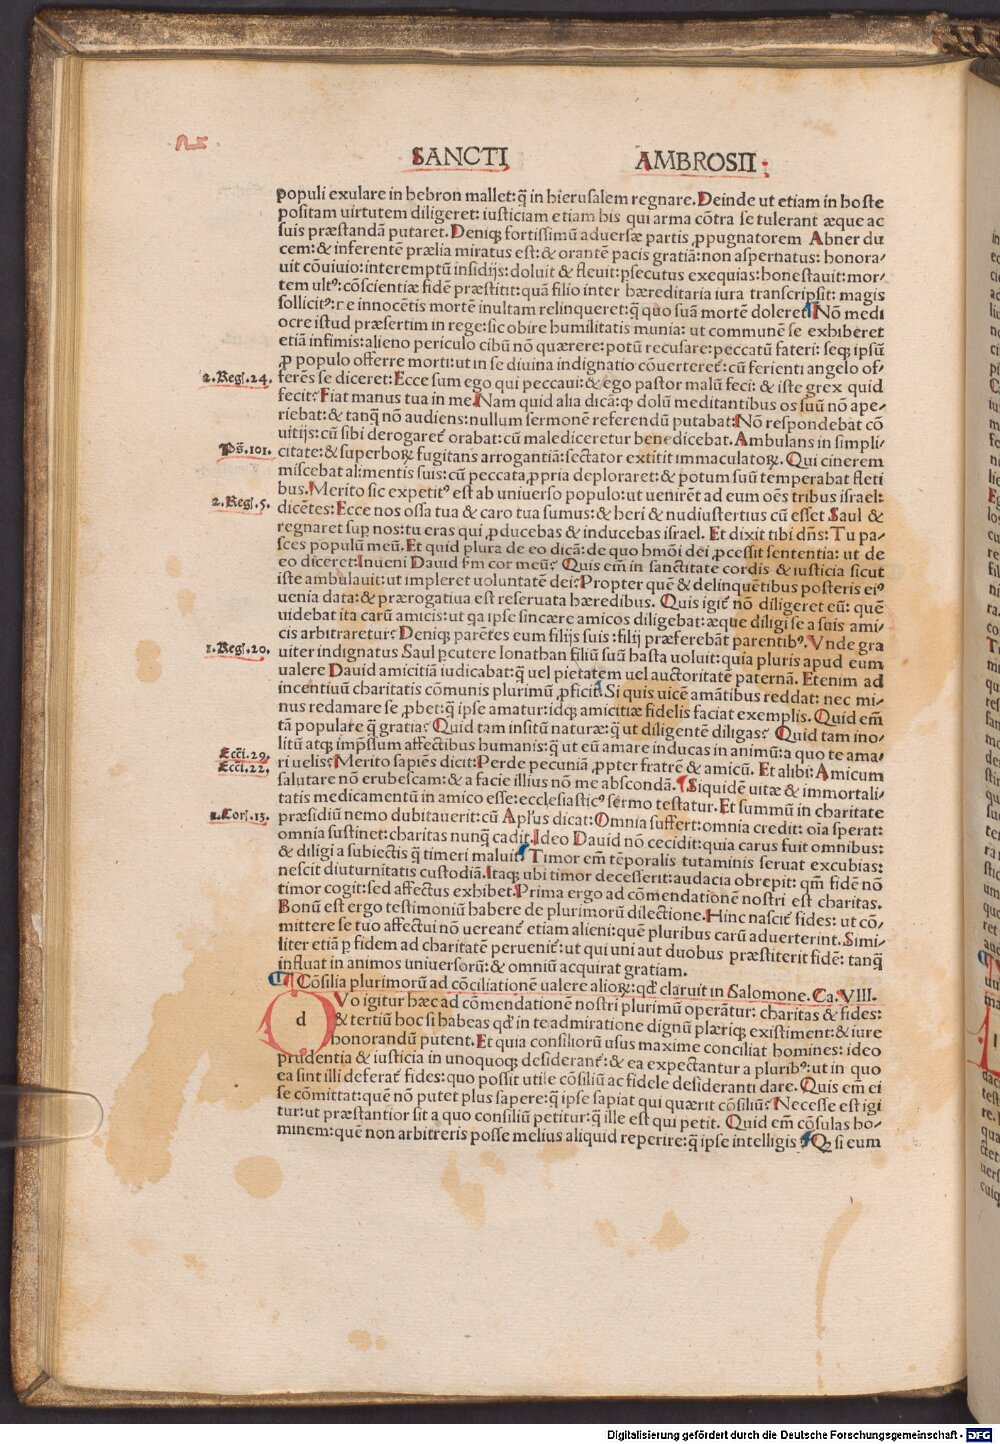 SANCTI AMBROSII:
populi exulare in hebron mallet: q̃ in hierusalem regnare. Deinde ut etiam in hoste
positam uirtutem diligeret: iusticiam etiam his qui arma cõtra se tulerant æque ac
suis præstandã putaret. Deniqʒ fortissimũ aduersæ partis ꝓpugnatorem Abner du
cem: & inferentẽ prælia miratus est: & orantẽ pacis gratiã: non aspernatus: honora/
uit cõuiuio: interemptũ insidijs: doluit & fleuit: ꝓsecutus exequias: honestauit: mor/
tem ultꝰ: cõscientiæ fidẽ præstitit: quã filio inter hæreditaria iura transcripsit: magis
sollicitꝰ: re innocẽtis mortẽ inultam relinqueret: q̃ quo suã mortẽ doleret. Nõ medi
ocre istud præsertim in rege: sic obire humilitatis munia: ut communẽ se exhiberet
etiã infimis: alieno periculo cibũ nõ quærere: potũ recusare: peccatũ fateri: seqʒ ipsũ
ꝓ populo offerre morti: ut in se diuina indignatio cõuerteret᷑: cũ ferienti angelo of/
2. Reg. 24.
ferẽs se diceret: Ecce sum ego qui peccaui: & ego pastor malũ feci: & iste grex quid
fecit? Fiat manus tua in me. Nam quid alia dicã: ꝙ dolũ meditantibus os suũ nõ ape/
riebat: & tanq̃ nõ audiens: nullum sermonẽ referendũ putabat: Nõ respondebat cõ
uitijs: cũ sibi derogaret᷑ orabat: cũ malediceretur benedicebat. Ambulans in simpli/
Ps. 101.
citate: & superboꝝ fugitans arrogantiã: sectator extitit immaculatoꝝ. Qui cinerem
miscebat alimentis suis: cũ peccata ꝓpria deploraret: & potum suũ temperabat fleti
bus. Merito sic expetitꝰ est ab uniuerso populo: ut uenirẽt ad eum oẽs tribus israel:
2. Reg. 5.
dicẽtes: Ecce nos ossa tua & caro tua sumus: & heri & nudiustertius cũ esset Saul &
regnaret suꝑ nos: tu eras qui ꝓducebas & inducebas israel. Et dixit tibi dñs: Tu pa/
sces populũ meũ. Et quid plura de eo dicã: de quo hmõi dei ꝓcessit sententia: ut de
eo diceret: Inueni Dauid ẜm cor meũ? Quis em̃ in sanctitate cordis & iusticia sicut
iste ambulauit: ut impleret uoluntatẽ dei? Propter quẽ & delinquẽtibus posteris eiꝰ
uenia data: & prærogatiua est reseruata hæredibus. Quis igit᷑ nõ diligeret eũ: quẽ
uidebat ita carũ amicis: ut qa ipse sincære amicos diligebat: æque diligi se a suis ami/
cis arbitraretur? Deniqʒ parẽtes eum filijs suis: filij præferebãt parentibꝰ. Vnde gra
1. Reg. 20.
uiter indignatus Saul ꝑcutere Ionathan filiũ suũ hasta uoluit: quia pluris apud eum
ualere Dauid amicitiã iudicabat: q̃ uel pietatem uel auctoritatẽ paternã. Etenim ad
incentiuũ charitatis cõmunis plurimũ ꝓficit. Si quis uicẽ amãtibus reddat: nec mi/
nus redamare se ꝓbet: q̃ ipse amatur: idqʒ amicitiæ fidelis faciat exemplis. Quid em̃
tã populare q̃ gratia? Quid tam insitũ naturæ: q̃ ut diligentẽ diligas? Quid tam ino/
litũ atqʒ imp̃ssum affectibus humanis: q̃ ut eũ amare inducas in animũ: a quo te ama/
Ecci. 29.
ri uelis? Merito sapiẽs dicit: Perde pecuniã ꝓpter fratrẽ & amicũ. Et alibi: Amicum
Ecci. 22.
salutare nõ erubescam: & a facie illius nõ me abscondã. Siquidẽ uitæ & immortali/
tatis medicamentũ in amico esse: ecclesiasticꝰ sermo testatur. Et summũ in charitate
1. Cor. 13.
præsidiũ nemo dubitauerit: cũ Apľus dicat: Omnia suffert: omnia credit: oĩa sperat:
omnia sustinet: charitas nunq̃ cadit. Ideo Dauid nõ cecidit: quia carus fuit omnibus:
& diligi a subiectis q̃ timeri maluit. Timor em̃ tẽporalis tutaminis seruat excubias:
nescit diuturnitatis custodiã. Itaqʒ ubi timor decesserit: audacia obrepit: qm̃ fidẽ nõ
timor cogit: sed affectus exhibet. Prima ergo ad cõmendationẽ nostri est charitas.
Bonũ est ergo testimoniũ habere de plurimorũ dilectione. Hinc nascit᷑ fides: ut cõ/
mittere se tuo affectui nõ uereant᷑ etiam alieni: quẽ pluribus carũ aduerterint. Simi/
liter etiã ꝑ fidem ad charitatẽ peruenit᷑: ut qui uni aut duobus præstiterit fidẽ: tanq̃
influat in animos uniuersorũ: & omniũ acquirat gratiam.
Cõsilia plurimorũ ad cõciliationẽ ualere alioꝝ: qđ claruit in Salomone. Ca. VIII.
dVo igitur hæc ad cõmendationẽ nostri plurimũ operãtur: charitas & fides:
& tertiũ hoc si habeas qđ in te admiratione dignũ plæriqʒ existiment: & iure
honorandũ putent. Et quia consiliorũ usus maxime conciliat homines: ideo
prudentia & iusticia in unoquoqʒ desiderant᷑: & ea expectantur a pluribꝰ: ut in quo
ea sint illi deferat᷑ fides: quo possit utile cõsiliũ ac fidele desideranti dare. Quis em̃ ei
se cõmittat: quẽ nõ putet plus sapere: q̃ ipse sapiat qui quærit cõsiliũ? Necesse est igi
tur: ut præstantior sit a quo consiliũ petitur: q̃ ille est qui petit. Quid em̃ cõsulas ho/
minem: quẽ non arbitreris posse melius aliquid reperire: q̃ ipse intelligis? Qʒ si eum
Digitalisierung gefördert durch die Deutsche Forschungsgemeinschaft - DFG